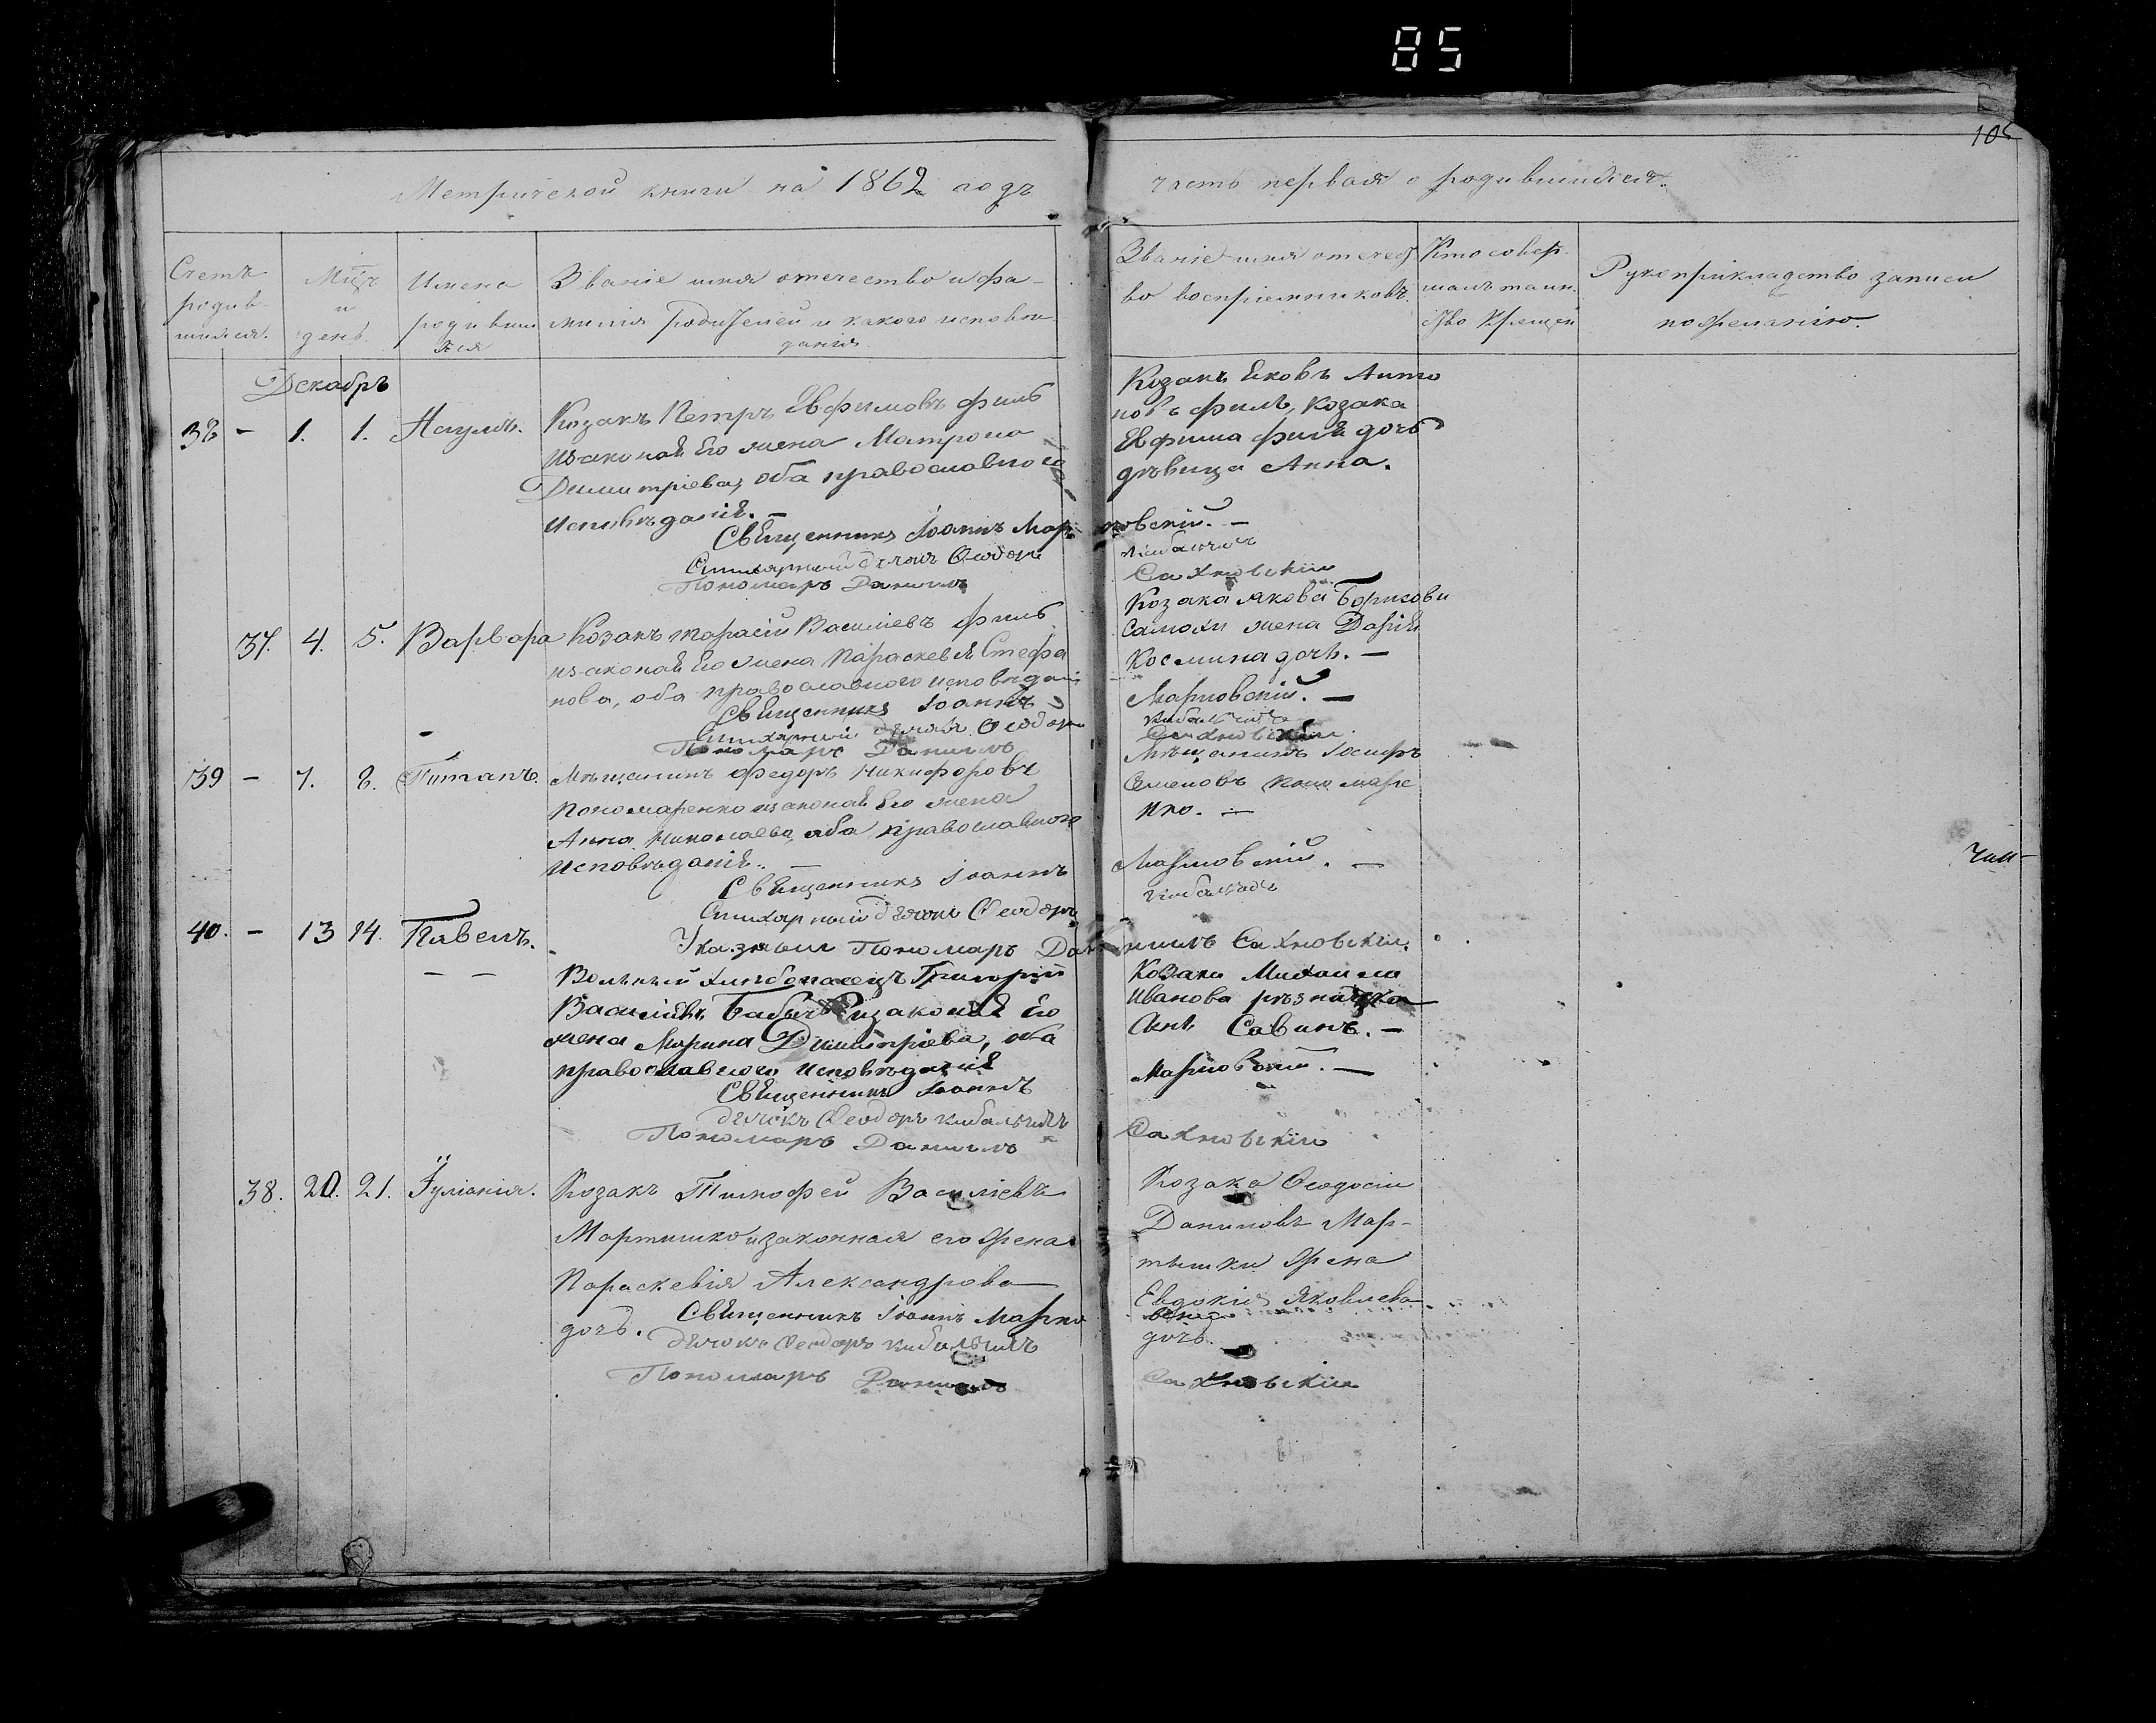 85
105
Метрической книги на 1862 годъ
часть первая о родившихся.
Счетъ родив-шихся.
Мцъ и день.
Имена родившихся
Званіе имя отечество и фа-
милія Родителей и какого исповѣ-
данія.
Званіе имя отечест-
во воспріемниковъ.
Кто совер-
шалъ таин-
ство Крещен
Рукоприкладство записи
по желанію.
Декабрь
38 - 1. 1. Наумъ.
Козакъ Петръ Евфимовъ филь
изаконая Его жена Матрона
Димитріева, оба православного
Исповѣданія. -
Козакъ Яковъ Анто
новъ филь, Козака
Евфима филя дочь
дѣвица Анна.
Священникъ Іоаннъ Мар-
новскій. -
Стихарный дьякъ Феодоръ
Кибальчичъ
Пономарь Даниилъ
Сахновскій
37. 4. 5. Варвара
Козакъ Тарасій Василіевъ филь
изаконая Его жена Параскевія Стефа
нова, оба православного исповѣдані
Козака Якова Борисови
жена Дарія
Космина дочь. -
Священникъ Іоаннъ
Марновскій. -
Стихарный дьякъ Феодоръ
Кибальчичъ
Пономарь Даниилъ
Сахновскій
39 - 7. 8. Титанъ.
Мѣщанинъ Федоръ Никифоровъ
Пономаренко изаконая Его жена
Анна Николаева, оба православного
Исповѣданія. -
Мѣщанинъ Іосифъ
Семеновъ Пономаре
нко. -
Священникъ Іоаннъ
Марновскій. -
Стихарный дьякъ Феодоръ
Кибальчичъ
Указный Пономарь Дан
иилъ Сахновскій.
40. - 13 14. Павелъ.
Вольный хлѣбопашецъ Григорій
Василіевъ изаконая Его
жена Марина Димитріева, оба
православного Исповѣданія
Козака Михаила
Иванова
Савинъ. -
Священникъ Іоаннъ
Марновскій. -
Дьякъ Феодоръ Кибальчичъ
Пономарь Даниилъ
Сахновскій
38. 20. 21. Іуліанія.
Козакъ Тимофей Василіевъ
Мартишко изаконная его жена
Параскевія Александрова
дочь.
Козака Феодосія
Даниловъ Мар-
тышки жена
Евдокія Яковлева
дочь.
Священникъ Іоаннъ Марно
вскій
Дьякъ Феодоръ Кибальчичъ
Пономарь Даниилъ
Сахновскій